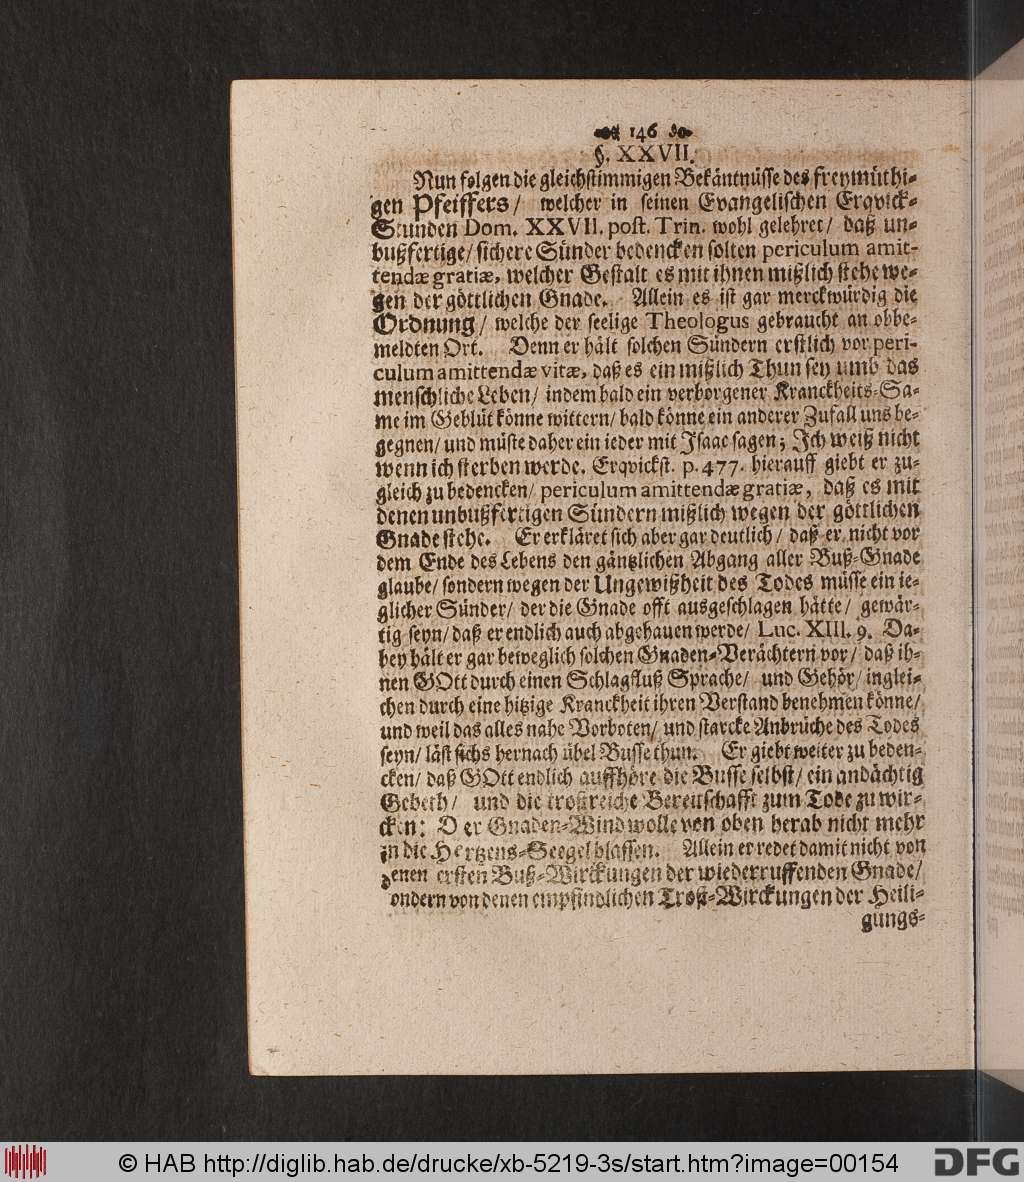 146
§. XXVII.
Nun folgen die gleichstimmigen Bekäntnüsse des freymüthi-
gen Pfeiffers/ welcher in seinen Evangelischen Erqvick-
Stunden Dom. XXVII. post. Trin. wohl gelehret/ daß un-
bußfertige/ sichere Sünder bedencken solten periculum amit-
tendæ gratiæ, welcher Gestalt es mit ihnen mißlich stehe we-
gen der göttlichen Gnade. Allein es ist gar merckwürdig die
Ordnung/ welche der seelige Theologus gebraucht an obbe-
meldten Ort. Denn er hält solchen Sündern erstlich vor peri-
culum amittendæ vitæ, daß es ein mißlich Thun sey umb das
menschliche Leben/ indem bald ein verborgener Kranckheits-Sa-
me im Geblüt könne wittern/ bald könne ein anderer Zufall uns be-
gegnen/ und müste daher ein ieder mit Isaac sagen; Ich weiß nicht
wenn ich sterben werde. Erqvickst. p. 477. hierauff giebt er zu-
gleich zu bedencken/ periculum amittendæ gratiæ, daß es mit
denen unbußfertigen Sündern mißlich wegen der göttlichen
Gnade stehe. Er erkläret sich aber gar deutlich/ daß er nicht vor
dem Ende des Lebens den gäntzlichen Abgang aller Buß-Gnade
glaube/ sondern wegen der Ungewißheit des Todes müsse ein ie-
glicher Sünder/ der die Gnade offt ausgeschlagen hätte/ gewär-
tig seyn/ daß er endlich auch abgehauen werde/ Luc. XIII. 9. Da-
bey hält er gar beweglich solchen Gnaden-Verächtern vor/ daß ih-
nen GOtt durch einen Schlagfluß Sprache/ und Gehör/ inglei-
chen durch eine hitzige Kranckheit ihren Verstand benehmen könne/
und weil das alles nahe Vorboten/ und starcke Anbrüche des Todes
seyn/ läst sichs hernach übel Busse thun. Er giebt weiter zu beden-
cken/ daß GOtt endlich auffhöre die Busse selbst/ ein andächtig
Gebeth/ und die trostreiche Bereitschafft zum Tode zu wir-
cken: Der Gnaden-Wind wolle von oben herab nicht mehr
in die Hertzens-Seegel blassen. Allein er redet damit nicht von
enen ersten Buß-Wirckungen der wiederruffenden Gnade/
ondern von denen empfindlichen Trost-Wirckungen der Heili-
gungs-
© HAB http://diglib.hab.de/drucke/xb-5219-3s/start.htm?image=00154
DFG